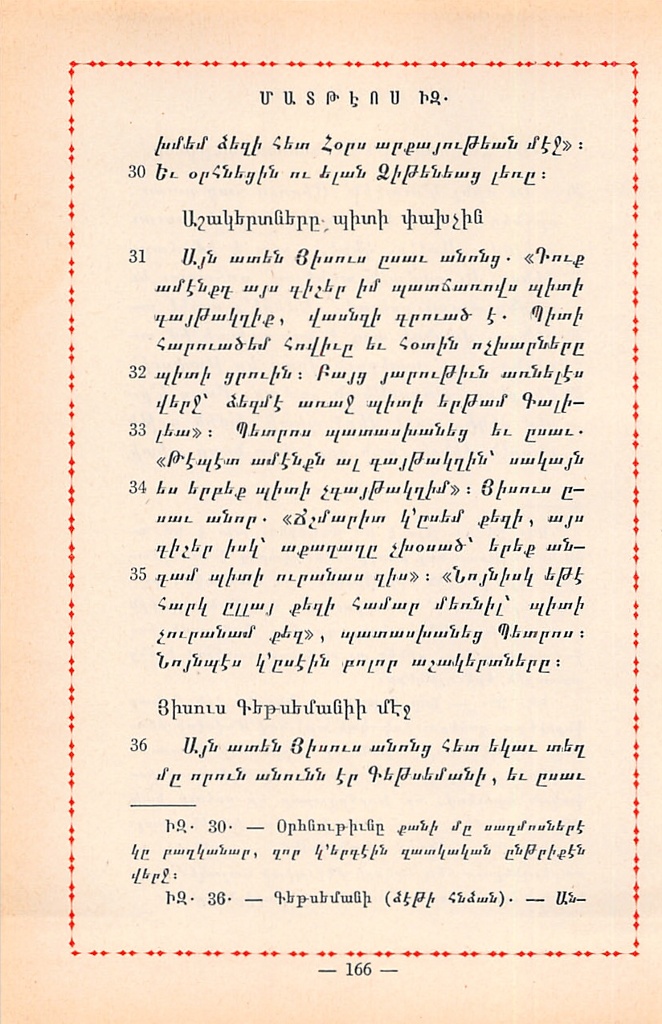 ՄԱՏԹԷՈՍ ԻԶ.
խմեմ ձեզի հետ Հօրս արքայութեան մէջ»։
30 Եւ օրհնեցին ու ելան Ձիթենեաց լեռը։
Աշակերտները պիտի փախչին
31 Այն ատեն Յիսուս ըսաւ անոնց. «Դուք
ամէնքդ այս գիշեր իմ պատճառովս պիտի
գայթակղիք, վասնզի գրուած է. Պիտի
հարուածեմ հովիւը եւ հօտին ոչխարները
32 պիտի ցրուին։ Բայց յարութիւն առնելէս
վերջ՝ ձեզմէ առաջ պիտի երթամ Գալի—
33 լեա»։ Պետրոս պատասխանեց եւ ըսաւ.
«Թէպէտ ամէնքն ալ գայթակղին՝ սակայն
34 ես երբեք պիտի չգայթակղիմ»։ Յիսուս ը—
սաւ անոր. «Ճշմարիտ կ՚ըսեմ քեզի, այս
գիշեր իսկ՝ աքաղաղը չխօսած՝ երեք ան—
35 գամ պիտի ուրանաս զիս»։ «Նոյնիսկ եթէ
հարկ ըլլայ քեզի համար մեռնիլ՝ պիտի
չուրանամ քեզ», պատասխանեց Պետրոս։
Նոյնպէս կ՚ըսէին բոլոր աշակերտները։
Յիսուս Գեթսեմանիի մէջ
36 Այն ատեն Յիսուս անոնց հետ եկաւ տեղ
մը որուն անունն էր Գեթսեմանի, եւ ըսաւ
ԻԶ. 30. — Օրհնութիւնը քանի մը սաղմոսներէ
կը բաղկանար, զոր կ՚երգէին զատկական ընթրիքէն
վերջ։
ԻԶ. 36. — Գեթսեմանի (ձէթի հնձան). — Ան—
— 166 —